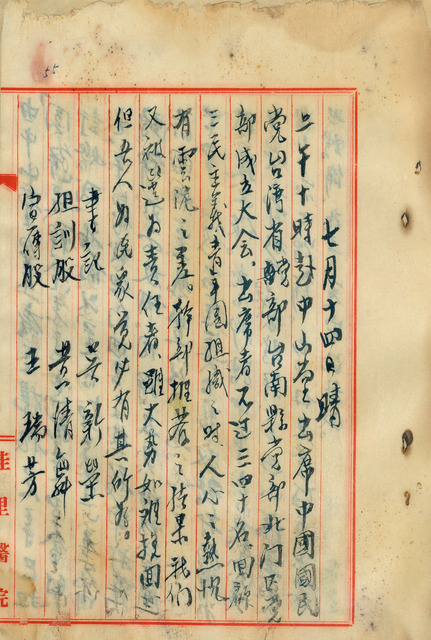 七月十四日 晴
上午十時許中山堂出席中國國民
黨台灣省黨部台南縣黨部北門區黨
部成立大会。出席者不过三四十名、回顧
三民主義青年團組織之時、人心之熱
有雲泥之差。幹部推薦之結果、我們
又被選為責任者、雖大勢如難挽回
但吾人为民眾党必有其所為。
書記 吳新榮
組訓股 黃清舞
宣傳股 王瑞芳
佳里醫院
55